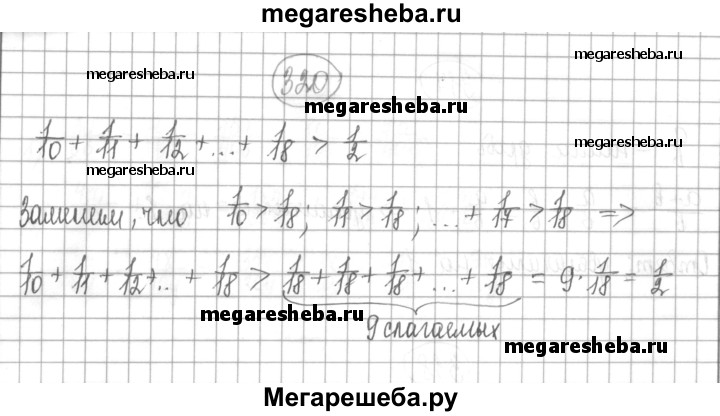 megaresheba.ru
320
megaresheba.ru
megaresheba.ru
megaresheba.ru
1/10 + 1/11 + 1/12 + ... + 1/18 > 1/2
megaresheba.ru
Заметим, что 1/10 > 1/18; 1/11 > 1/18; ... + 1/17 > 1/18 =>
1/10 + 1/11 + 1/12 + .. + 1/18 > 1/18 + 1/18 + 1/18 + ... + 1/18 = 9 · 1/18 = 1/2
9 слагаемых
megaresheba.ru
megaresheba.ru
Мегарешеба.ру